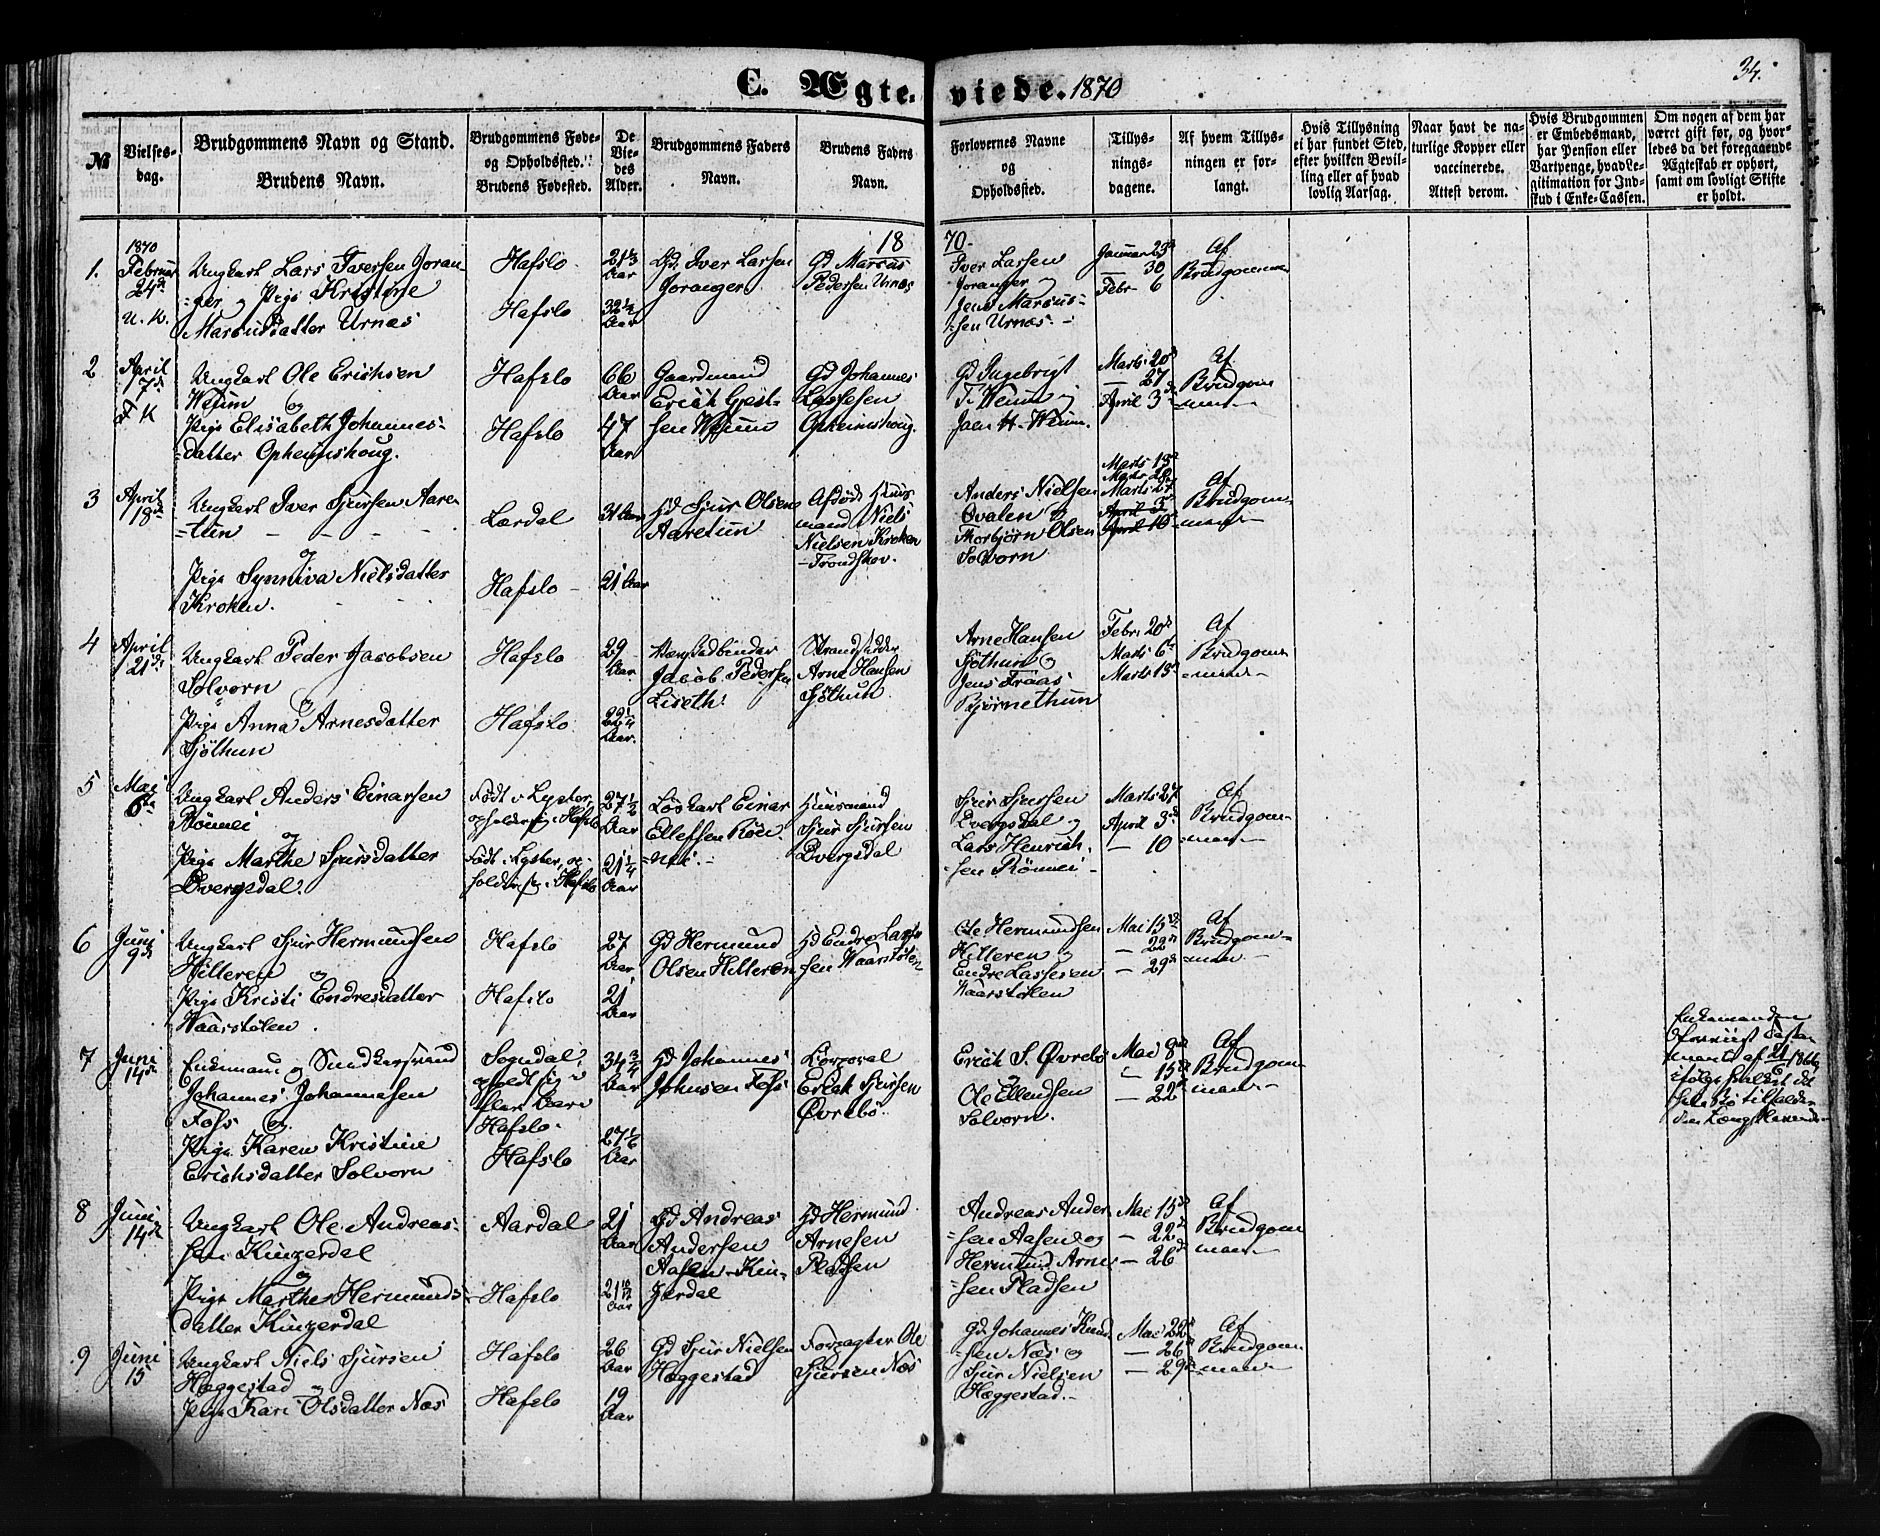 34.
C. Ægte-viede. 1870
№
Vielses-dag.
Brudgommens Navn og Stand.
Brudens Navn.
Brudgommens Føde- og Opholdssted.
Brudens Fødested.
De Vie-des Alder.
Brudgommens Faders Navn.
Brudens Faders Navn.
Forlovernes Navne og Opholdssted.
Tillys-nings-dagene.
Af hvem Tillys-ningen er for-langt.
Hvis Tillysning ei har fundet Sted, efter hvilken Bevil-ling eller af hvad lovlig Aarsag.
Naar havt de na-turlige Kopper eller vaccinerede.
Attest derom.
Hvis Brudgommen er Embedsmand, har Pension eller Vartpenge, hvad Le-gitimation for Ind-skud i Enke-Cassen.
Om nogen af dem har været gift før, og hvor-ledes da det foregaaende Ægteskab er ophørt, samt om lovligt Skifte er holdt.
1870
1.
Februar
24de
U. K.
Ungkarl Lars Iversen Joran-
=ger og Pige Kristine
Marcusdatter Urnæs
Hafslo
Hafslo
Aar
32½
Aar
Gd. Iver Larsen
Joranger
Gd Marcus
Pedersen Urnæs
Iver Larsen
Joranger og
Jens Marcus-
sen Urnæs.
Januar 23
— 30
Febr. 6
Af
Brudgommen
2
April
7de
Ungkarl Ole Erichsen
Weum og
Pige Elisabeth Johannes-
=datter Opheimshoug.
Hafslo
Hafslo
66
Aar
47
Aar
Gaardmand
Erich Gjest-
sen Weum
Gd Johannes
Lassesen
Opheimshoug.
Gd Ingebrigt
T. Weum og
Jaen H. Weum.
Marts 20de
— 27
April 3de
Af
Brudgom
=men
3
April
18de
Ungkarl Iver Sjursen Aare-
=tun
og
Pige Synniva Nielsdatter
Kroken.
Lærdal
Hafslo
31 Aar
21 Aar
Gd Sjur Olsen
Aaretun
Afdøde Huus-
mand Niels
Nielsen Kroken
Anders Nielsen
Øvalen og
Thorbjørn Olsen
Solvorn
Marts 13de
Marts 20de
Marts 27
April 3de
April 10
Af
Brudgom-
men
4
April
21de
Ungkarl Peder Jacobsen
Solvorn
og
Pige Anna Arnesdatter
Sjøthun
Hafslo
Hafslo
29
Aar
22¼
Aar.
Jacob Pedersen
Liseth
Strandsidder
Arne Hansen
Sjøthun
Arne Hansen
Sjøthun og
Bjørnethun
Febr. 20de
Marts 6te
Marts 13
Af
Brudgom
=men
5
Mai
6te
Ungkarl Anders Einarsen
Rönnei
og
Pige Marthe Sjursdatter
Qvergsdal.
Født i Lyster,
opholder sig i Hafslo
Født i Lyster, op-
holder sig i Hafslo
27½
Aar
21¼
Aar
Løskarl Einar
Ellefsen Rön
=nei
Huusmand
Sjur Sjursen
Qvergsdal
Sjur Sjursen
Qvergsdal og
Lars Henrich-
sen Rönnei
Marts 27
April 3de
— 10
Af
Brudgom
=men
6
Juni
9de
Ungkarl Sjur Hermundsen
Hilleren og
Pige Kristi Endresdatter
Waarstølen.
Hafslo
Hafslo
27
Aar
21
Aar
Gd Hermund
Olsen Hilleren
Gd Endre Lasse
sen Waarstølen
Ole Hermundsen
Hilleren og
Endre Lassesen
Waarstølen
Mai 15de
— 22de
— 29de
Af
Brudgom=
=men
7
Juni
14de
Enkemand og
Johannes Johannesen
Fos og
Pige Karen Kristine
Erichsdatter Solvorn
Sogndal,
Hafslo.
Hafslo
34¾
Aar
27 1/6
Aar
Gd Johannes
Johnsen Fos
Corporal
Erich Sjursen
Øvrebø
Erich S. Øvrebø
Ole Ellendsen
Solvorn.
Mai 8de
15de
— 22de
Af
Brudgom
men
Enkemanden
af 21/6 1866
8
Juni
14de
Ungkarl Ole Andreas-
sen Kinzerdal
og
Pige Marthe Hermunds-
datter Kinzerdal
Aardal
Hafslo
21
Aar
Aar
Gd Andreas
Andersen
Aasen - Kin-
zerdal
Gd Hermund
Arnesen
Pladsen
Andreas Ander
=sen Aasen og
Hermund Arne
=sen Pladsen
Mai 15de
— 22de
— 26de
Af
Brudgom
men
9
Juni
15
Ungkarl Niels Sjursen
Hæggestad og
Pige Kari Olsdatter Næs
Hafslo
Hafslo
26
Aar
19
Aar
Gd Sjur Nielsen
Hæggestad
Forpagter Ole
Sjursen Næs
Gd. Johannes Knud
=sen Næs og
Sjur Nielsen
Hæggestad.
Mai 22de
— 26de
— 29de
Af
Brudgom
men